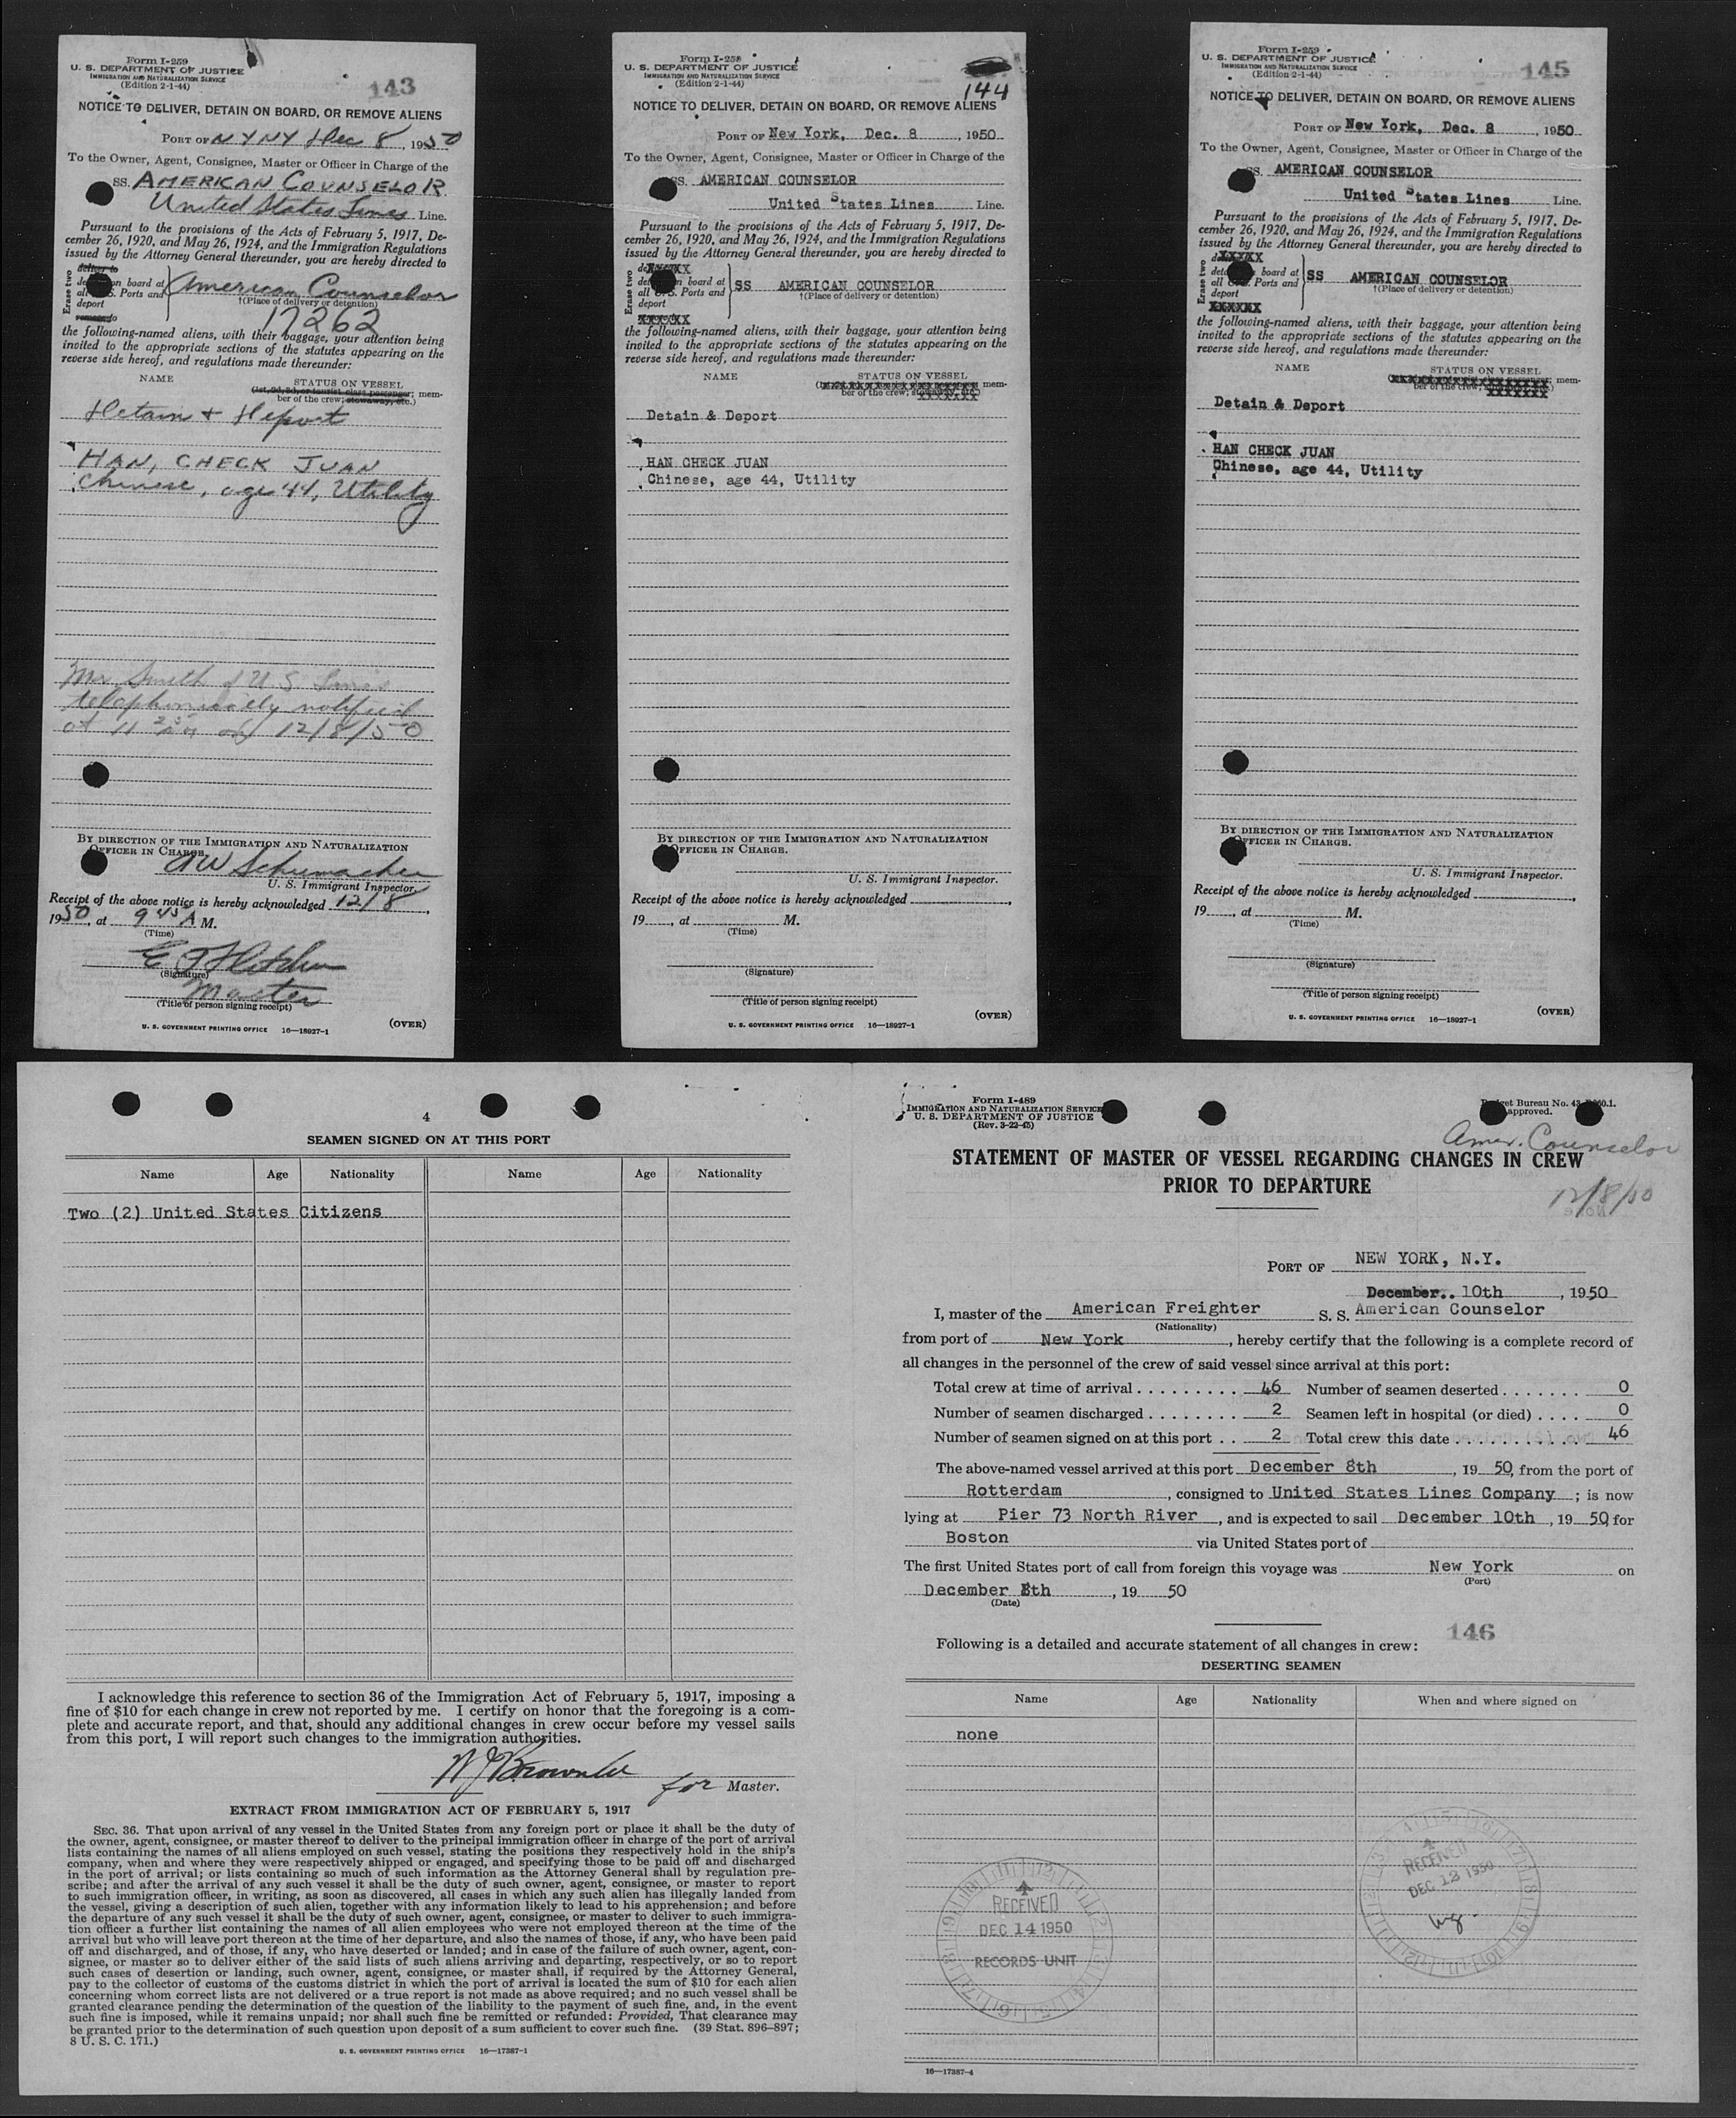 Form I-259
U. S. DEPARTMENT OF JUSTICE
IMMIGRATION AND NATURALIZATION SERVICE
(Edition 2-1-44)
143
NOTICE TO DELIVER, DETAIN ON BOARD, OR REMOVE ALIENS
PORT OF N Y NY Dec 8, 1950
To the Owner, Agent, Consignee, Master or Officer in Charge of the
SS. AMERICAN COUNSELOR
United States Lines Line.
Pursuant to the provisions of the Acts of February 5, 1917, De-
cember 26, 1920, and May 26, 1924, and the Immigration Regulations
issued by the Attorney General thereunder, you are hereby directed to
Erase two
deliver to
board at
Ports and
deport
American Counselor
†(Place of delivery or detention)
17262
the following-named aliens, with their baggage, your attention being
invited to the appropriate sections of the statutes appearing on the
reverse side hereof, and regulations made thereunder:
NAME STATUS ON VESSEL
(1st, 2d, 3d, or tourist class passenger; mem-
ber of the crew; stowaway, etc.)
Detain + Deport
HAN, CHECK JUAN
Chinese, age 44, Utility
Mr Smith of U S Lines
telephonically notified
at 11 12/8/50
BY DIRECTION OF THE IMMIGRATION AND NATURALIZATION
OFFICER IN CHARGE.
AW Schumacher
U. S. Immigrant Inspector.
Receipt of the above notice is hereby acknowledged 12/8,
1950, at 9 45 A M.
(Time)
E
(Signature)
Master
(Title of person signing receipt)
U. S. GOVERNMENT PRINTING OFFICE 16—18927-1
(OVER)
Form I-259
U. S. DEPARTMENT OF JUSTICE
IMMIGRATION AND NATURALIZATION SERVICE
(Edition 2-1-44)
144
NOTICE TO DELIVER, DETAIN ON BOARD, OR REMOVE ALIENS
PORT OF New York, Dec. 8, 1950
To the Owner, Agent, Consignee, Master or Officer in Charge of the
SS. AMERICAN COUNSELOR
United States Lines Line.
Pursuant to the provisions of the Acts of February 5, 1917, De-
cember 26, 1920, and May 26, 1924, and the Immigration Regulations
issued by the Attorney General thereunder, you are hereby directed to
Erase two
board at
all Ports and
deport
XXXXXX
SS AMERICAN COUNSELOR
†(Place of delivery or detention)
the following-named aliens, with their baggage, your attention being
invited to the appropriate sections of the statutes appearing on the
reverse side hereof, and regulations made thereunder:
NAME STATUS ON VESSEL
mem-
ber of the crew;
Detain & Deport
HAN CHECK JUAN
Chinese, age 44, Utility
BY DIRECTION OF THE IMMIGRATION AND NATURALIZATION
OFFICER IN CHARGE.
U. S. Immigrant Inspector.
Receipt of the above notice is hereby acknowledged
19, at M.
(Time)
(Signature)
(Title of person signing receipt)
U. S. GOVERNMENT PRINTING OFFICE 16—18927-1
(OVER)
Form I-259
U. S. DEPARTMENT OF JUSTICE
IMMIGRATION AND NATURALIZATION SERVICE
(Edition 2-1-44)
145
NOTICE TO DELIVER, DETAIN ON BOARD, OR REMOVE ALIENS
PORT OF New York, Dec. 8, 1950
To the Owner, Agent, Consignee, Master or Officer in Charge of the
SS. AMERICAN COUNSELOR
United States Lines Line.
Pursuant to the provisions of the Acts of February 5, 1917, De-
cember 26, 1920, and May 26, 1924, and the Immigration Regulations
issued by the Attorney General thereunder, you are hereby directed to
Erase two
board at
all Ports and
deport
XXXXXX
SS AMERICAN COUNSELOR
†(Place of delivery or detention)
the following-named aliens, with their baggage, your attention being
invited to the appropriate sections of the statutes appearing on the
reverse side hereof, and regulations made thereunder:
NAME STATUS ON VESSEL
mem-
ber of the crew;
XXXXXXX
Detain & Deport
HAN CHECK JUAN
Chinese, age 44, Utility
BY DIRECTION OF THE IMMIGRATION AND NATURALIZATION
OFFICER IN CHARGE.
U. S. Immigrant Inspector.
Receipt of the above notice is hereby acknowledged
19, at M.
(Time)
(Signature)
(Title of person signing receipt)
U. S. GOVERNMENT PRINTING OFFICE 16—18927-1
(OVER)
4
SEAMEN SIGNED ON AT THIS PORT
Name Age Nationality Name Age Nationality
Two (2) United States Citizens
I acknowledge this reference to section 36 of the Immigration Act of February 5, 1917, imposing a
fine of $10 for each change in crew not reported by me. I certify on honor that the foregoing is a com-
plete and accurate report, and that, should any additional changes in crew occur before my vessel sails
from this port, I will report such changes to the immigration authorities.
for Master.
EXTRACT FROM IMMIGRATION ACT OF FEBRUARY 5, 1917
SEC. 36. That upon arrival of any vessel in the United States from any foreign port or place it shall be the duty of
the owner, agent, consignee, or master thereof to deliver to the principal immigration officer in charge of the port of arrival
lists containing the names of all aliens employed on such vessel, stating the positions they respectively hold in the ship's
company, when and where they were respectively shipped or engaged, and specifying those to be paid off and discharged
in the port of arrival; or lists containing so much of such information as the Attorney General shall by regulation pre-
scribe; and after the arrival of any such vessel it shall be the duty of such owner, agent, consignee, or master to report
to such immigration officer, in writing, as soon as discovered, all cases in which any such alien has illegally landed from
the vessel, giving a description of such alien, together with any information likely to lead to his apprehension; and before
the departure of any such vessel it shall be the duty of such owner, agent, consignee, or master to deliver to such immigra-
tion officer a further list containing the names of all alien employees who were not employed thereon at the time of the
arrival but who will leave port thereon at the time of her departure, and also the names of those, if any, who have been paid
off and discharged, and of those, if any, who have deserted or landed; and in case of the failure of such owner, agent, con-
signee, or master so to deliver either of the said lists of such aliens arriving and departing, respectively, or so to report
such cases of desertion or landing, such owner, agent, consignee, or master shall, if required by the Attorney General,
pay to the collector of customs of the customs district in which the port of arrival is located the sum of $10 for each alien
concerning whom correct lists are not delivered or a true report is not made as above required; and no such vessel shall be
granted clearance pending the determination of the question of the liability to the payment of such fine, and, in the event
such fine is imposed, while it remains unpaid; nor shall such fine be remitted or refunded: Provided, That clearance may
be granted prior to the determination of such question upon deposit of a sum sufficient to cover such fine. (39 Stat. 896–897;
8 U. S. C. 171.)
U. S. GOVERNMENT PRINTING OFFICE 16—17387-1
Form I-489
IMMIGRATION AND NATURALIZATION SERVICE
U. S. DEPARTMENT OF JUSTICE
(Rev. 3-22-45)
Budget Bureau No.
approved.
Amer. Counselor
12/8/50
STATEMENT OF MASTER OF VESSEL REGARDING CHANGES IN CREW
PRIOR TO DEPARTURE
PORT OF NEW YORK, N.Y.
December.. 10th, 1950
I, master of the American Freighter S. S. American Counselor
(Nationality)
from port of New York, hereby certify that the following is a complete record of
all changes in the personnel of the crew of said vessel since arrival at this port:
Total crew at time of arrival . . . . . . . . . 46 Number of seamen deserted . . . . . . . 0
Number of seamen discharged . . . . . . . . 2 Seamen left in hospital (or died) . . . . 0
Number of seamen signed on at this port . . 2 Total crew this date . . . . . . . . . . . 46
The above-named vessel arrived at this port December 8th, 1950, from the port of
Rotterdam, consigned to United States Lines Company; is now
lying at Pier 73 North River, and is expected to sail December 10th, 1950, for
Boston via United States port of
The first United States port of call from foreign this voyage was New York on
(Port)
December 8th, 1950
(Date)
146
Following is a detailed and accurate statement of all changes in crew:
DESERTING SEAMEN
Name Age Nationality When and where signed on
none
RECEIVED
DEC 13 1950
RECEIVED
DEC 14 1950
RECORDS UNIT
16—17387-4